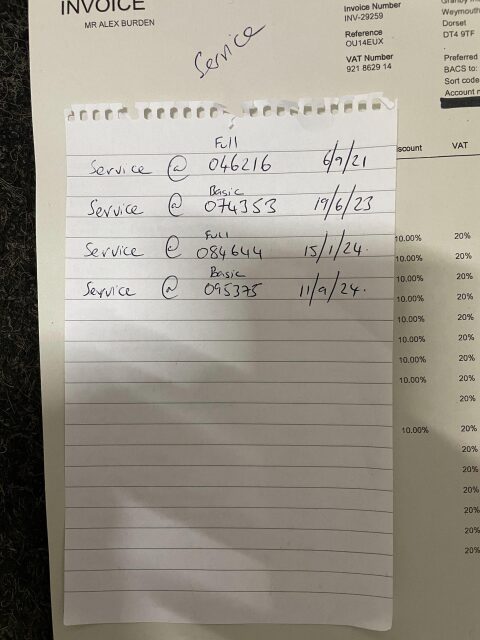 INVOICE
MR ALEX BURDEN
Service
Invoice Number
INV-29259
Reference
OU14EUX
VAT Number
921 8629 14
Weymouth
Dorset
DT4 9TF
Preferred
BACS to:
Sort code
Account
scount VAT
Full
Service @ 046216 6/9/21
Basic
Service @ 074353 19/6/23
Full
Service @ 084644 15/1/24.
Basic
Service @ 095375 11/9/24.
10.00% 20%
10.00% 20%
10.00% 20%
10.00% 20%
10.00% 20%
10.00% 20%
10.00% 20%
10.00% 20%
20%
10.00% 20%
20%
20%
20%
20%
20%
20%